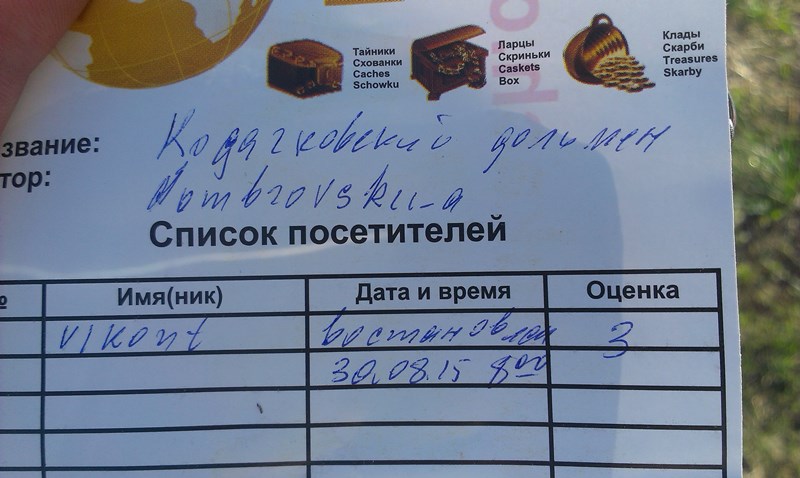 Тайники
Схованки
Caches
Schowku
Ларцы
Скриньки
Caskets
Box
Клады
Скарби
Treasures
Skarby
звание: Кодачковский дольмен
тор: Dombrovsku-a
Список посетителей
Имя(ник) Дата и время Оценка
vikont востановлен 3
30.08.15 800